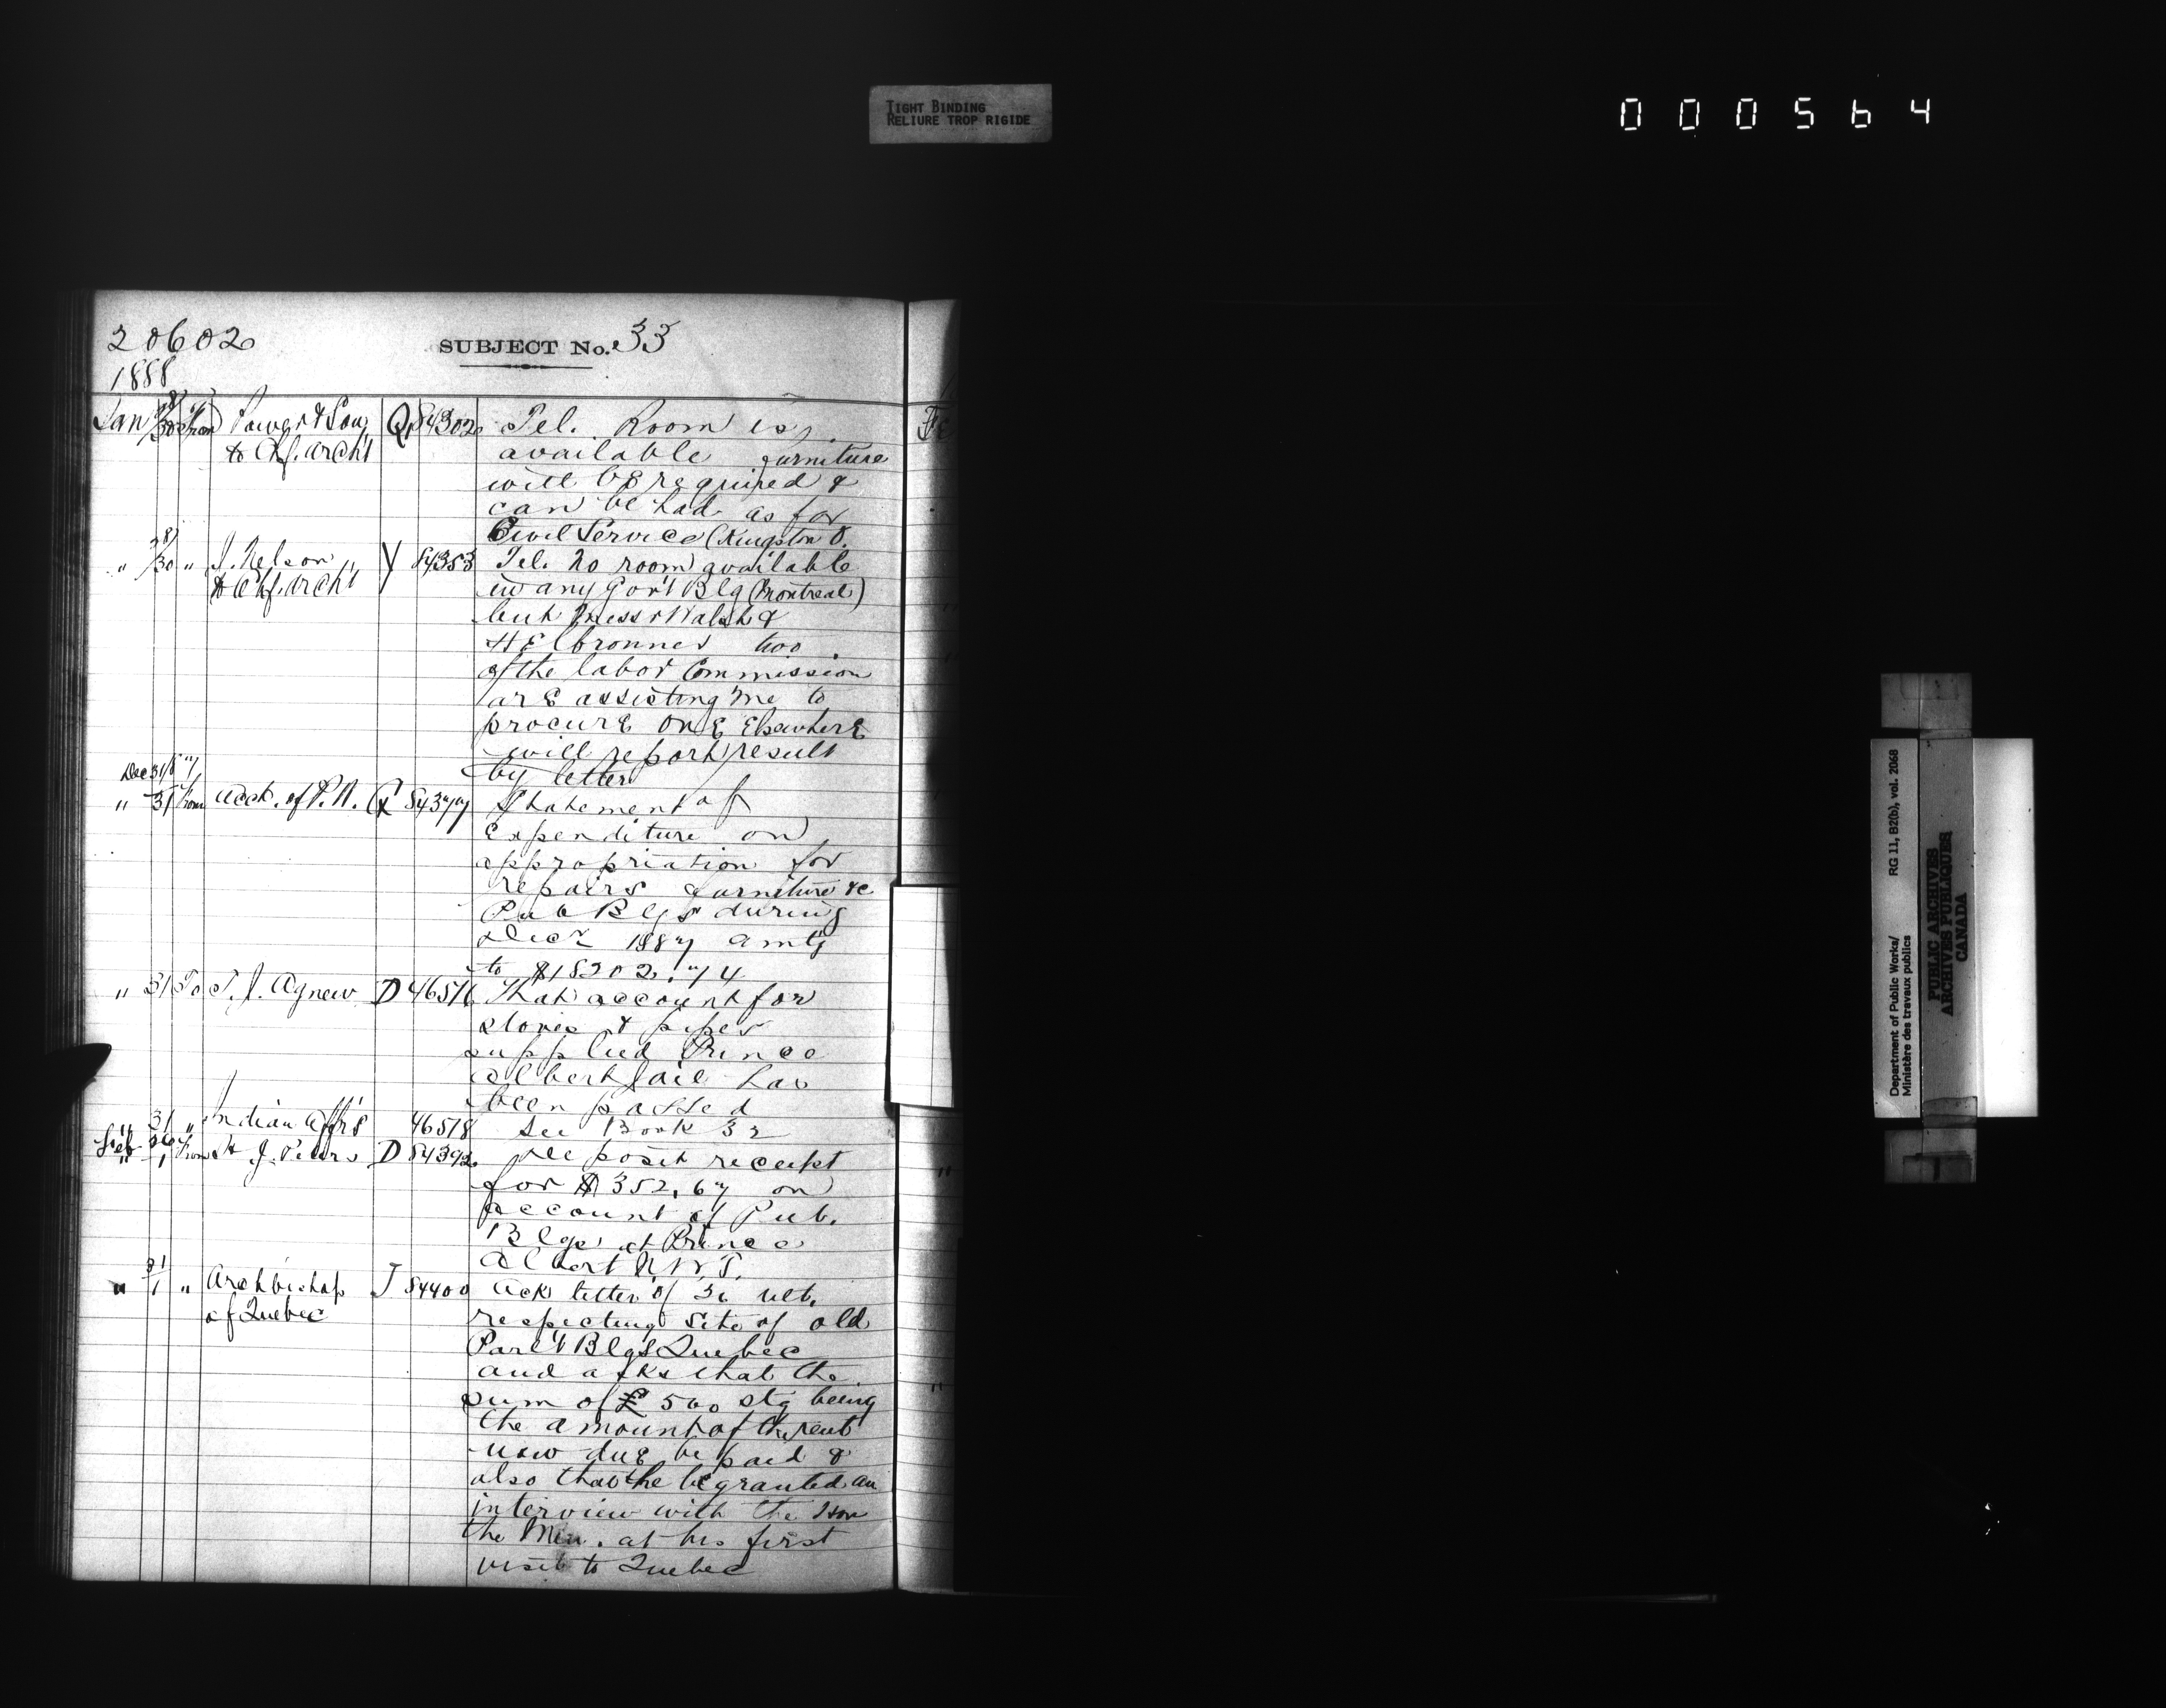 TIGHT BINDING
RELIURE TROP RIGIDE
000564
20602
SUBJECT No. 33
1888
Jan 28/30 From Power & Son Q 84302 Tel. Room is
to Chf. Archt available furniture
will be required &
can be had as for
Civil Service (Kingston O.
" 28/30 " J. Nelson Y 84353 Tel. no room available
to Chf. Archt in any Gov't Blg (Montreal)
but Messrs Walsh &
HElbronner two
of the labor Commission
are assisting me to
procure one Elsewhere
will report result
by letter
Dec 31/87
" 31 From Acct. of P.W. 84377 Statement of
expenditure on
appropriation for
repairs furniture &c
Pub Blgs during
Decr 1887 amtg
to $18202.74
" 31 To T. J. Agnew D 46516 That account for
stoves & pipes
supplied Prince
Albert Jail has
been passed
" 31 " Indian Affrs 46518 See Book 32
Feb 26/1 From H. J. Peters D 84392 Deposit receipt
for $352.67 on
account of Pub.
Blgs at Prince
Albert N.W.T.
" 31/1 " Archbishop J 84400 Ack letter of 30 ult.
of Quebec respecting Site of old
Parl't Blgs Quebec
and asks that the
sum of £ 500 stg being
the amount of the rent
now due be paid &
also that he be granted an
interview with the Hon
the Min. at his first
visit to Quebec
Fe
Department of Public Works/
Ministère des travaux publics
RG 11, B2(b), vol. 2068
PUBLIC ARCHIVES
ARCHIVES PUBLIQUES
CANADA